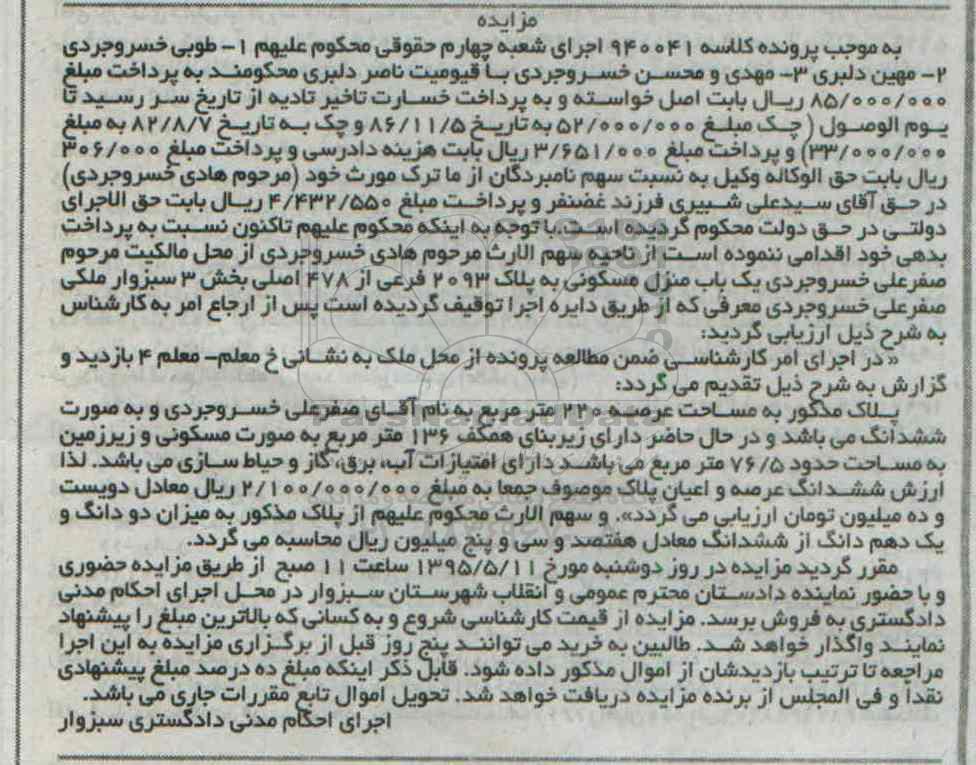 مزایده
به موجب پرونده کلاسه ۹۴۰۰۴۱ اجرای شعبه چهارم حقوقی محکوم علیهم ۱- طوبی خسروجردی
۲- مهین دلبری ۳- مهدی و محسن خسروجردی با قیومیت ناصر دلبری محکومند به پرداخت مبلغ
۸۵/۰۰۰/۰۰۰ ریال بابت اصل خواسته و به پرداخت خسارت تاخیر تادیه از تاریخ سر رسید تا
یوم الوصول (چک مبلغ ۵۲/۰۰۰/۰۰۰ به تاریخ ۸۶/۱۱/۵ و چک به تاریخ ۸۲/۸/۷ به مبلغ
۳۳/۰۰۰/۰۰۰) و پرداخت مبلغ ۳/۶۵۱/۰۰۰ ریال بابت هزینه دادرسی و پرداخت مبلغ ۳۰۶/۰۰۰
ریال بابت حق الوکاله وکیل به نسبت سهم نامبردگان از ما ترک مورث خود (مرحوم هادی خسروجردی)
در حق آقای سیدعلی شبیری فرزند غضنفر و پرداخت مبلغ ۴/۴۳۲/۵۵۰ ریال بابت حق الاجرای
دولتی در حق دولت محکوم گردیده است.با توجه به اینکه محکوم علیهم تاکنون نسبت به پرداخت
بدهی خود اقدامی ننموده است از ناحیه سهم الارث مرحوم هادی خسروجردی از محل مالکیت مرحوم
صفرعلی خسروجردی یک باب منزل مسکونی به پلاک ۲۰۹۳ فرعی از ۴۷۸ اصلی بخش ۳ سبزوار ملکی
صفرعلی خسروجردی معرفی که از طریق دایره اجرا توقیف گردیده است پس از ارجاع امر به کارشناس
به شرح ذیل ارزیابی گردید:
« در اجرای امر کارشناسی ضمن مطالعه پرونده از محل ملک به نشانی خ معلم- معلم ۴ بازدید و
گزارش به شرح ذیل تقدیم می گردد:
پلاک مذکور به مساحت عرصه ۲۲۰ متر مربع به نام آقای صفرعلی خسروجردی و به صورت
ششدانگ می باشد و در حال حاضر دارای زیربنای همکف ۱۳۶ متر مربع به صورت مسکونی و زیرزمین
به مساحت حدود ۷۶/۵ متر مربع می باشد دارای امتیازات آب، برق، گاز و حیاط سازی می باشد. لذا
ارزش ششدانگ عرصه و اعیان پلاک موصوف جمعا به مبلغ ۲/۱۰۰/۰۰۰/۰۰۰ ریال معادل دویست
و ده میلیون تومان ارزیابی می گردد». و سهم الارث محکوم علیهم از پلاک مذکور به میزان دو دانگ و
یک دهم دانگ از ششدانگ معادل هفتصد و سی و پنج میلیون ریال محاسبه می گردد.
مقرر گردید مزایده در روز دوشنبه مورخ ۱۳۹۵/۵/۱۱ ساعت ۱۱ صبح از طریق مزایده حضوری
و با حضور نماینده دادستان محترم عمومی و انقلاب شهرستان سبزوار در محل اجرای احکام مدنی
دادگستری به فروش برسد. مزایده از قیمت کارشناسی شروع و به کسانی که بالاترین مبلغ را پیشنهاد
نمایند واگذار خواهد شد. طالبین به خرید می توانند پنج روز قبل از برگزاری مزایده به این اجرا
مراجعه تا ترتیب بازدیدشان از اموال مذکور داده شود. قابل ذکر اینکه مبلغ ده درصد مبلغ پیشنهادی
نقدا و فی المجلس از برنده مزایده دریافت خواهد شد. تحویل اموال تابع مقررات جاری می باشد.
اجرای احکام مدنی دادگستری سبزوار